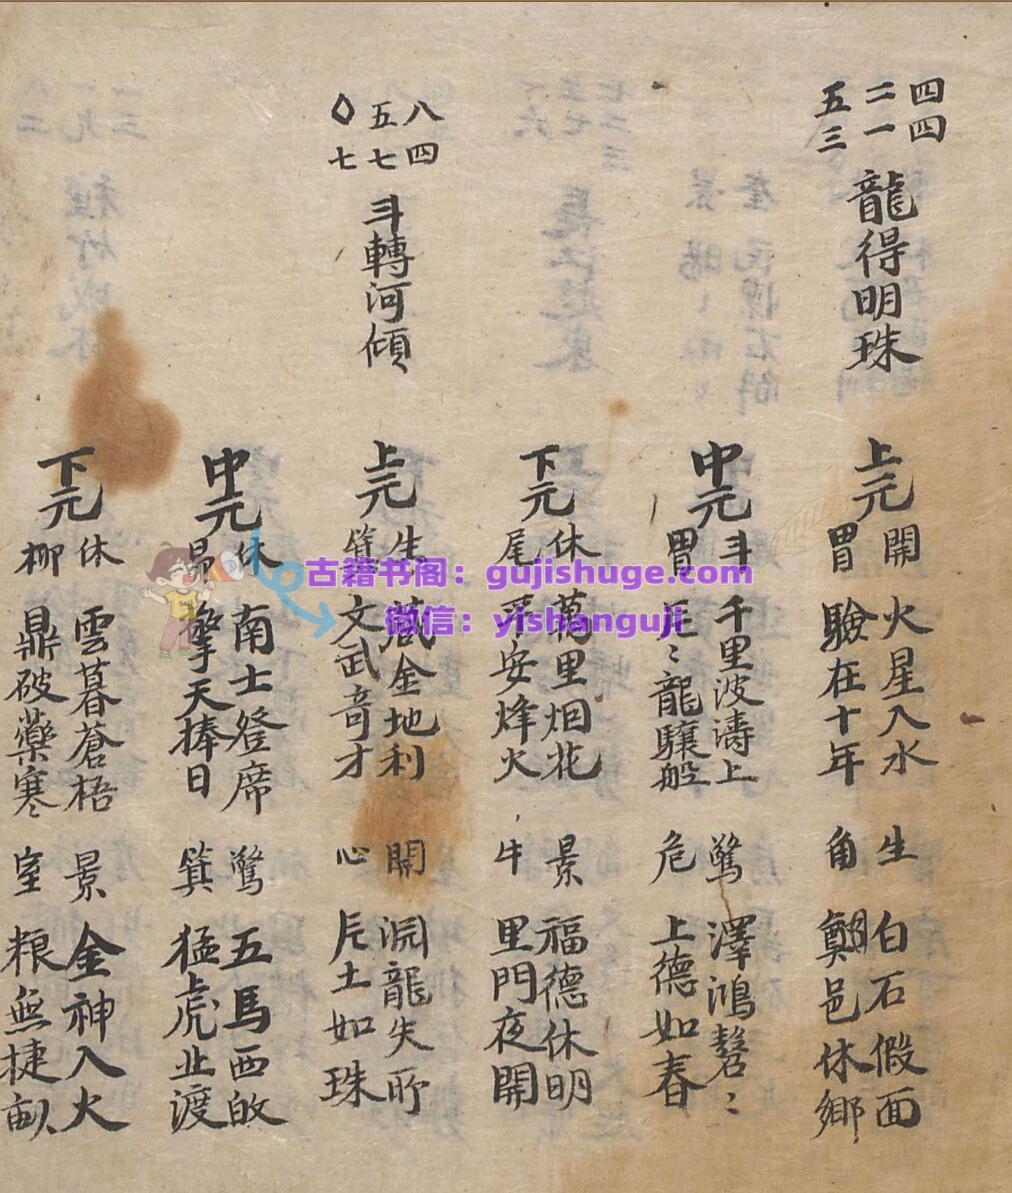 四四
二一
五三
龍得明珠
上元
開
胃
火星入水
驗在十年
生
角
白石假面
鄭邑休鄉
中元
斗
胃
千里波濤上
龍驤船
驚
危
澤鴻嗸〻
上德如春
下元
休
尾
萬里烟花
平安烽火
景
牛
福德休明
里門夜開
八四
五七
〇七
斗轉河傾
上元
生
藏金地利
文武奇才
開
心
淵龍失所
尺土如珠
中元
休
昴
南士登席
擎天捧日
驚
箕
五馬西
猛虎止渡
下元
休
柳
雲暮蒼梧
鼎破藥寒〻
景
室
金神入火
粮無捷畝
古籍书阁：gujishuge.com
微信：yishanguji